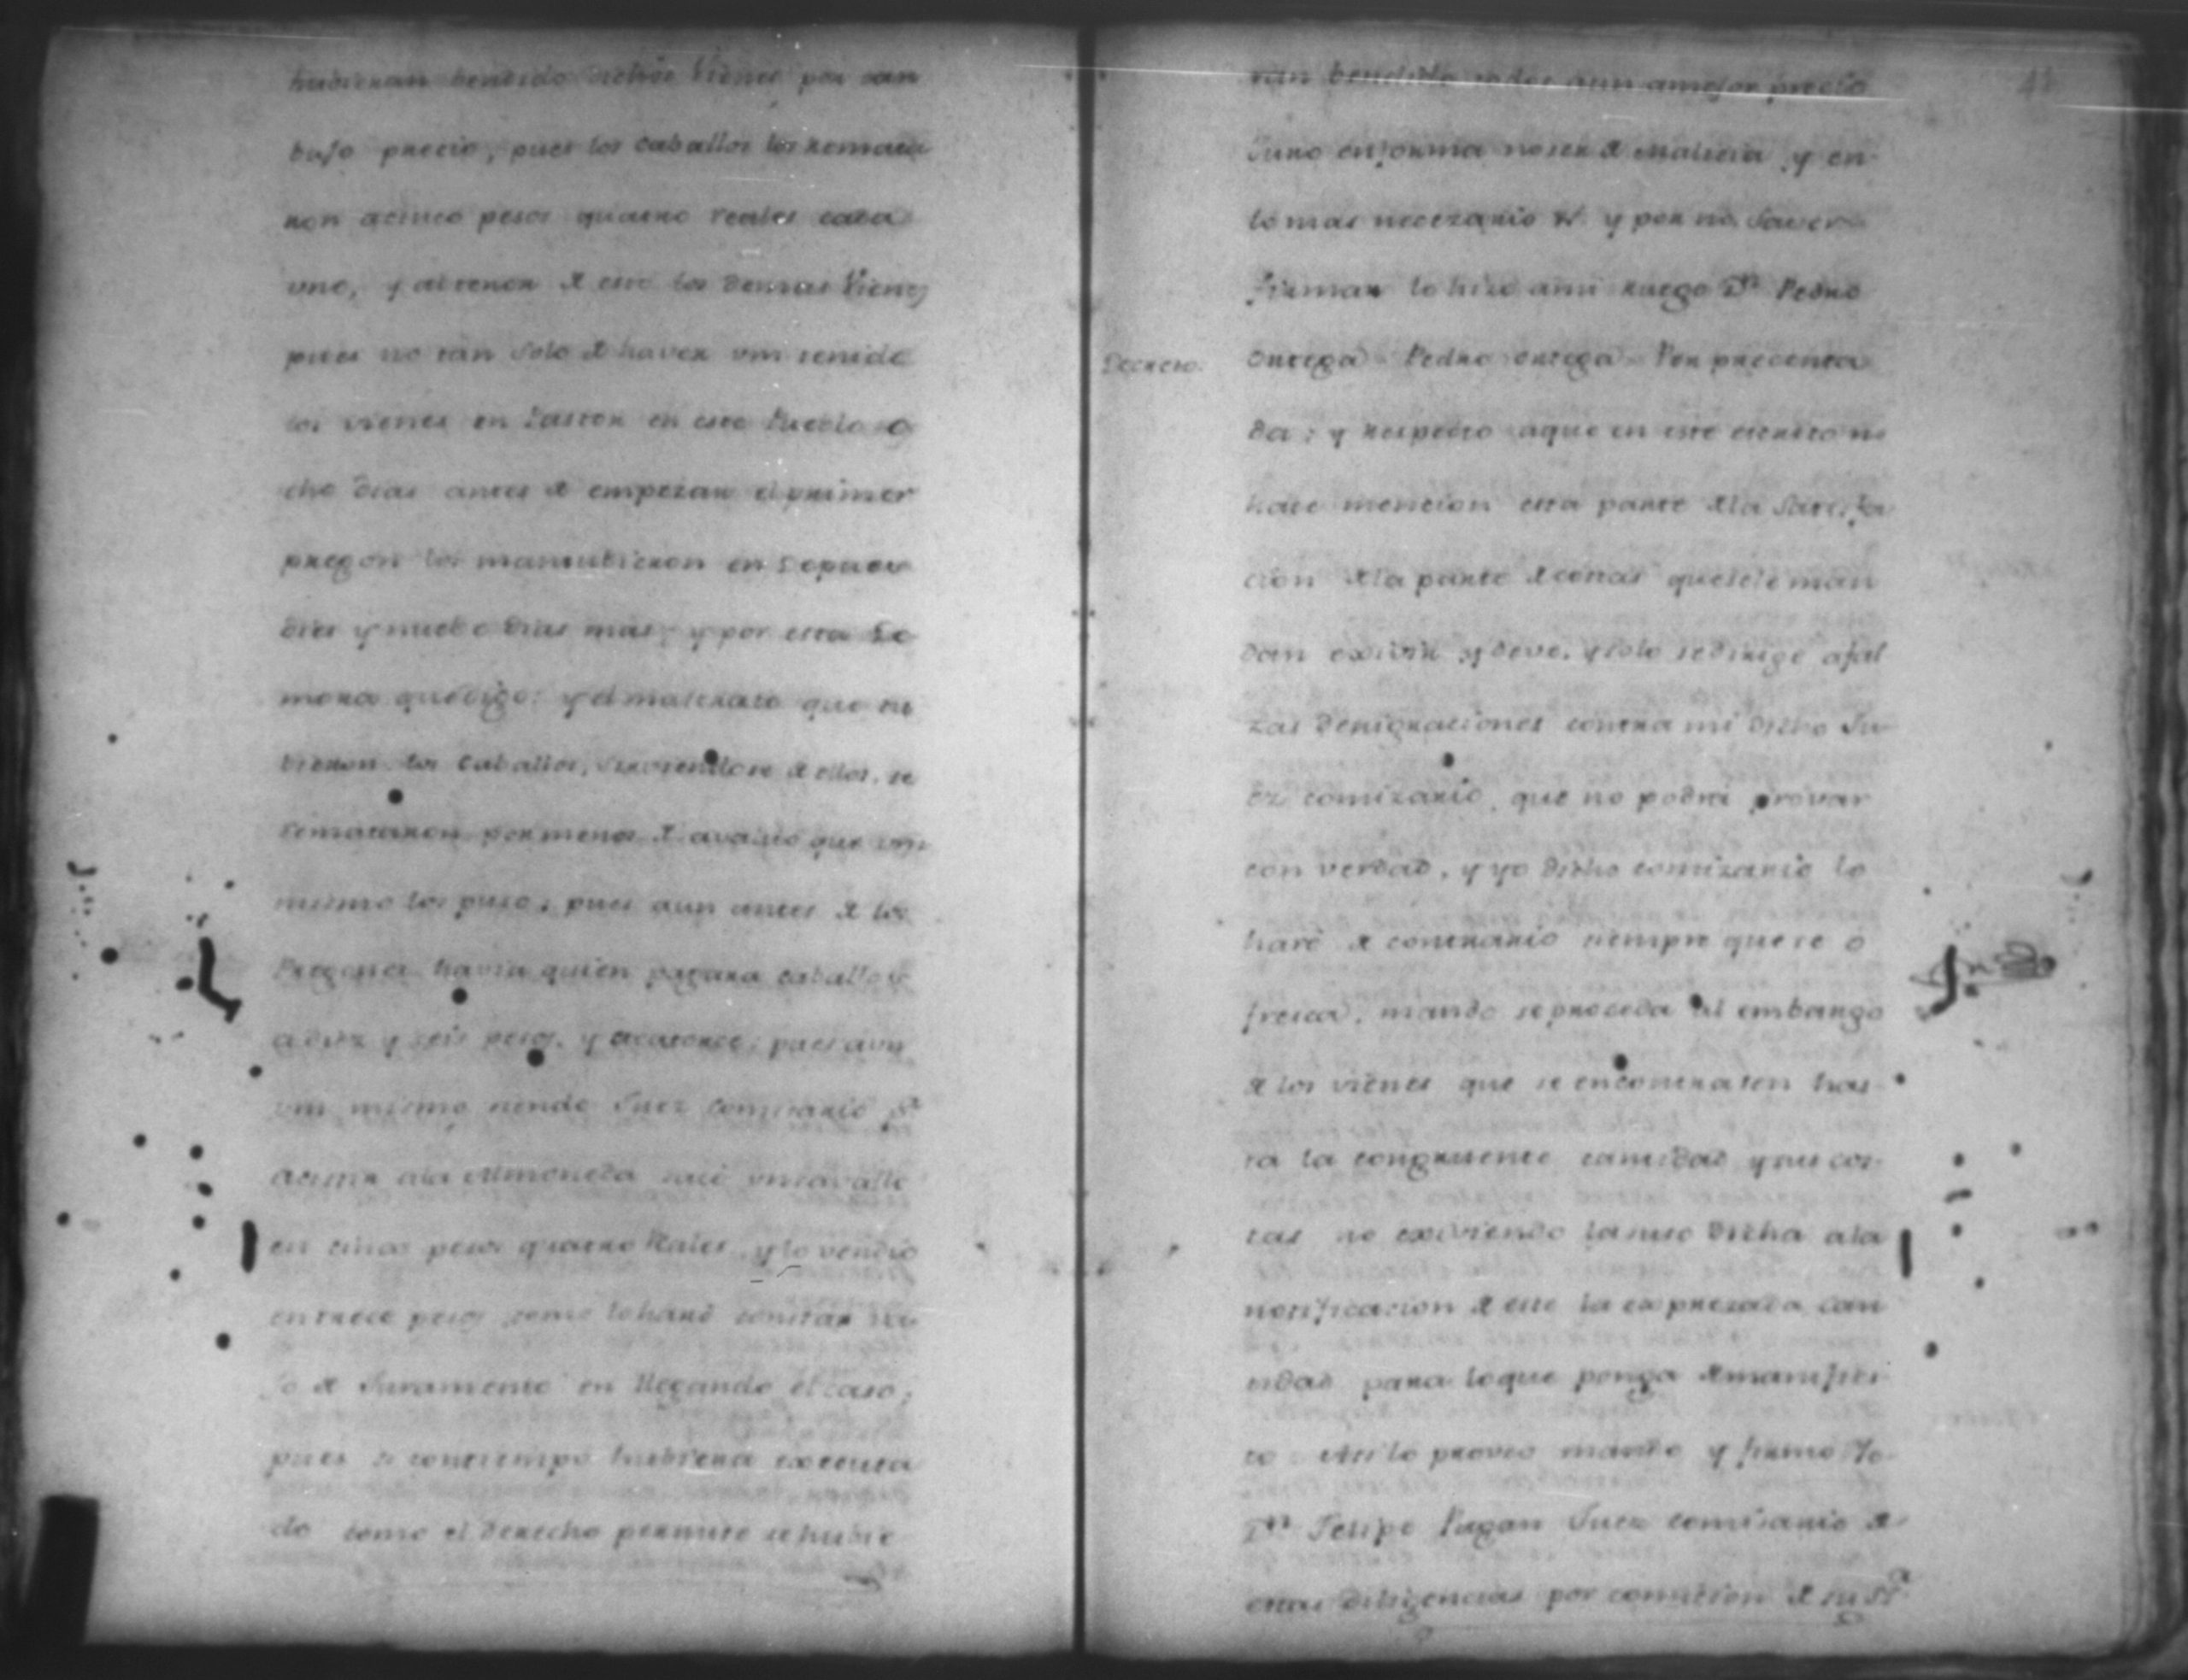 hubieran bendido dichos vienes por tan
bajo precio, pues los caballos los remata
ron acinco pesos quatro reales cada
uno, y altenor de esto los demas vienes
pues no tan solo de haver vm tenido
los vienes en Pastor en este Pueblo o
cho dias antes de empezar el primer
pregon los mantubieron en
dies y nuebe dias mas, y por esta De
mora que digo: y el maltrato que tu
bieron los Caballos, sirviendose de ellos, se
remataron por menos de avaluo que vm
mismo los puso; pues aun antes de los
Pregones havia quien pagara caballos
a diez y seis pesos, y acatorce; pues aun
vm mismo siendo Juez comisario pa
ala Almoneda sacó un cavallo
en cinco pesos quatro Reales, y lo vendio
en trece pesos como lo haré constar va
jo de Juramento en llegando el caso;
pues si contiempo hubiera executa
do como el derecho permite se hubie
ran bendido todos aun amejor precio
Juro enforma noser de malicia y en
lo mas necezario &. y por no saver
firmar lo hizo ami ruego Dn Pedro
Ortega = Pedro Ortega = Por precenta
Decreto.
da: y respecto aque en este escrito no
hace mencion esta parte dela Satisfa
cion dela parte de costas que sele man
dan exivir y deve, y solo se dirige a fal
zas denigraciones contra mi dicho Ju
ez comizario, que no podrá provar
con verdad, y yo dicho comizario lo
haré de contrario siempre que se o
fresca, mando se proceda al embargo
de los vienes que se encontrasen has
ta la congruente cantidad y sus cos
tas no exiviendo la suso dicha ala
notificacion de este la exprezada can
tidad para loque ponga demanifies
to Asi lo proveo mando y firmo Yo
Dn Felipe Pagan Juez comisario de
estas diligencias por comicion de su Sa